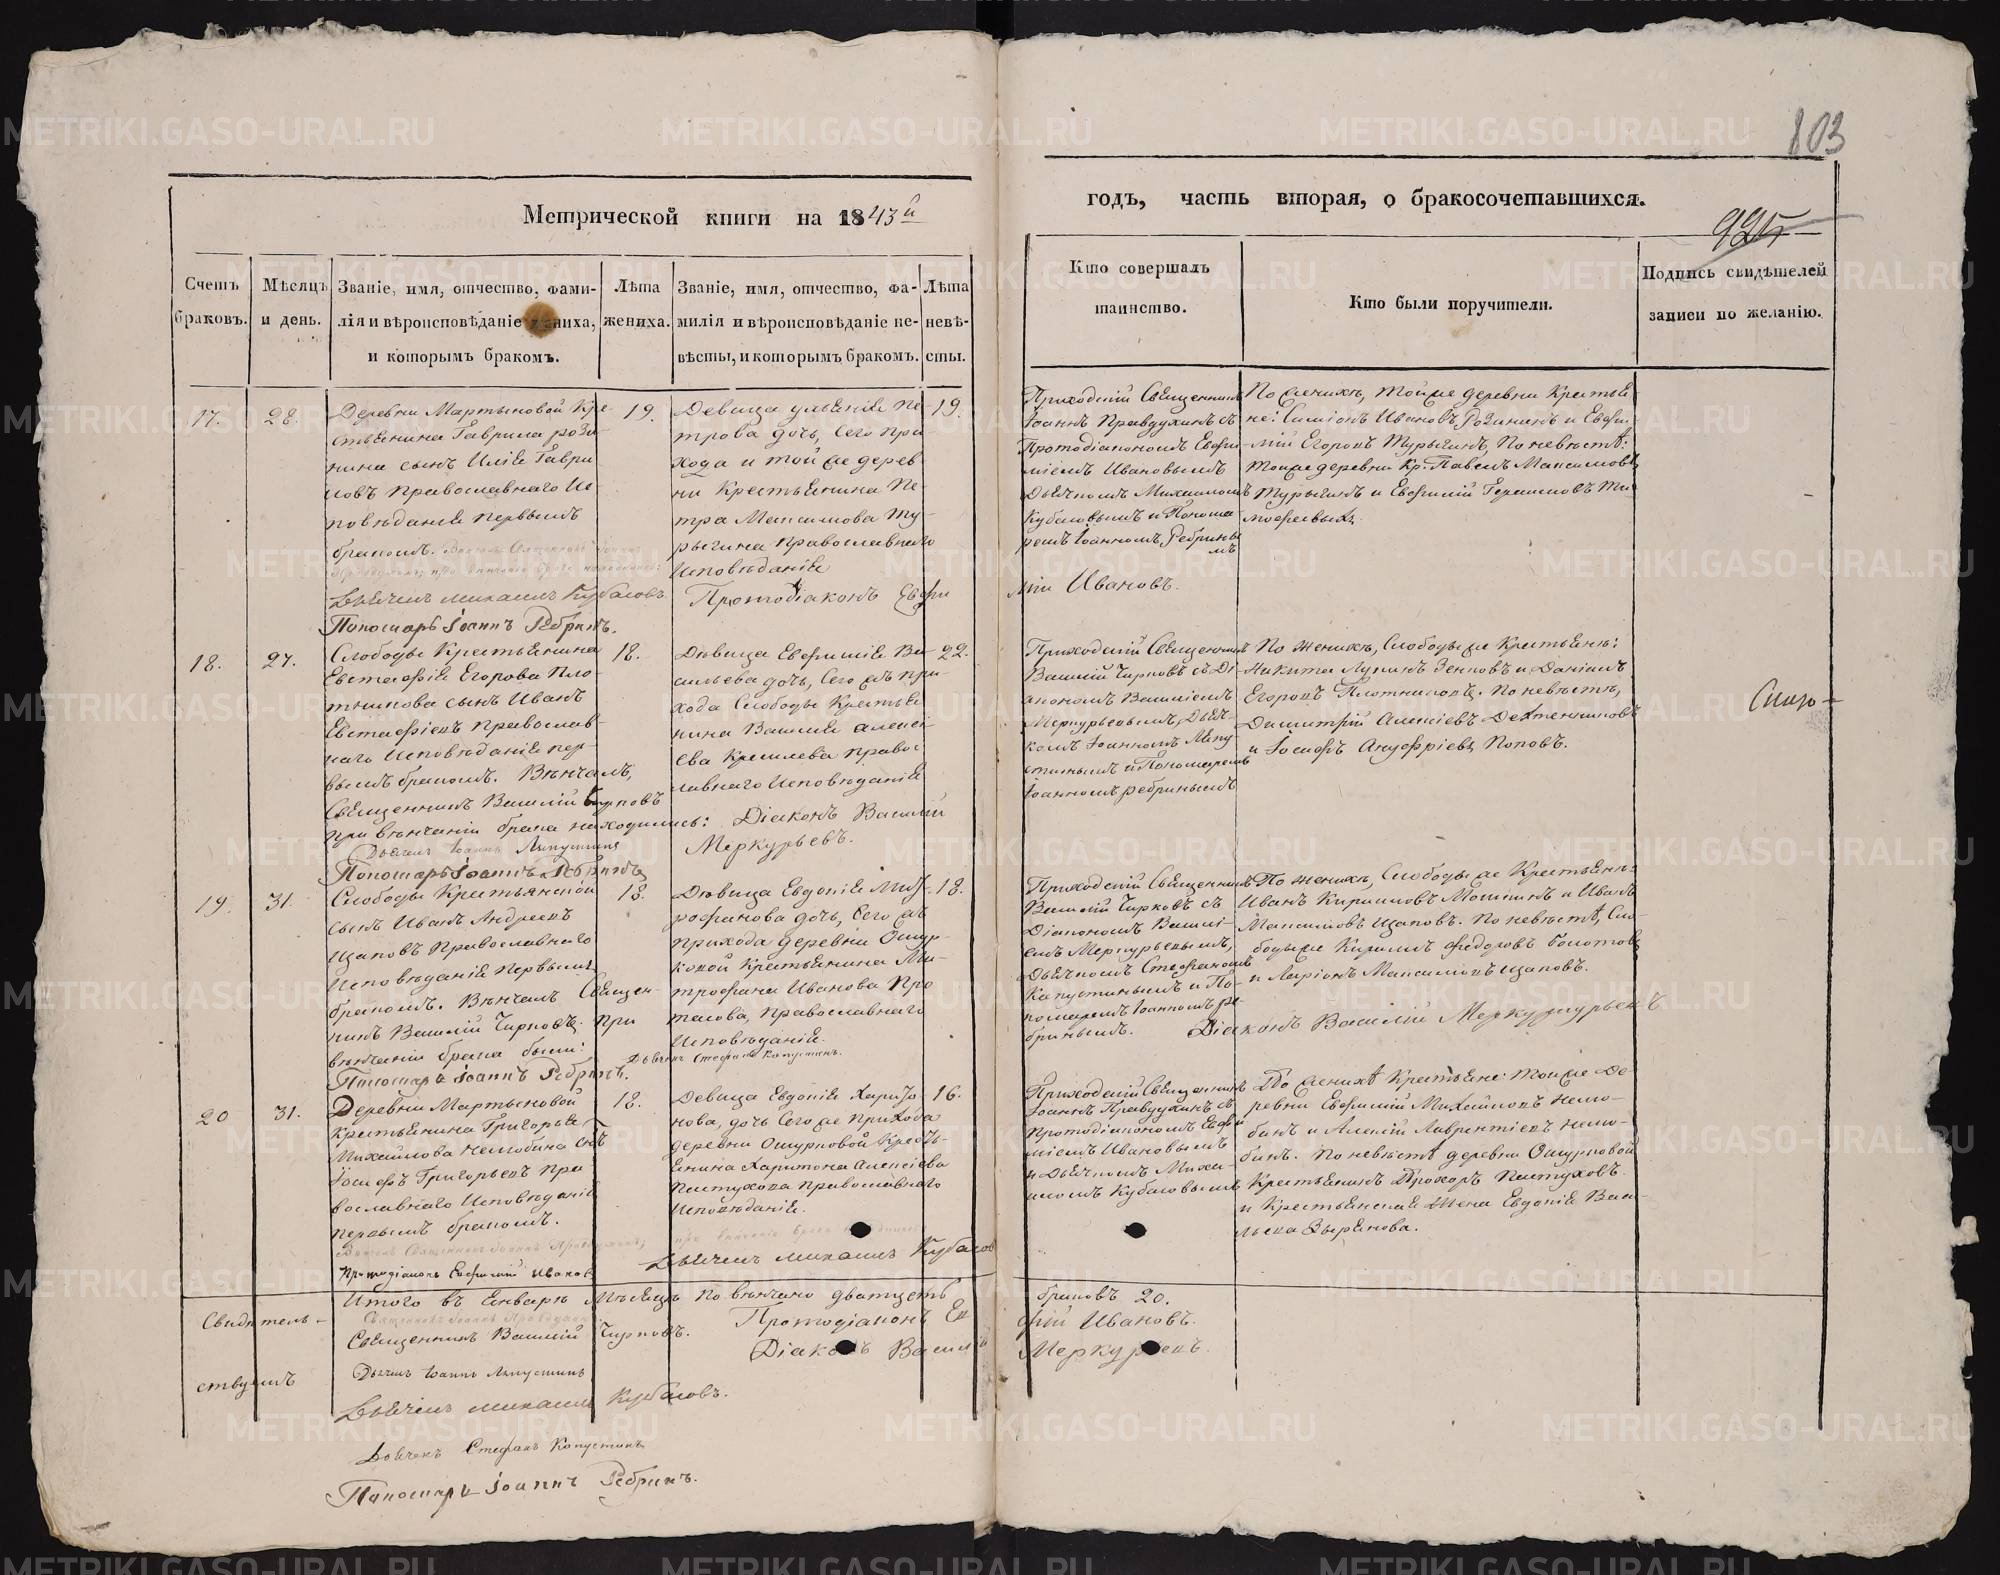 803
Метрической книги на 1843й
годъ, часть вторая, о бракосочетавшихся.
925
Счетъ браковъ.
Мѣсяцъ и день.
Званіе, имя, отчество, фами-
лія и вѣроисповѣданіе жениха,
и которымъ бракомъ.
Лѣта
жениха.
Званіе, имя, отчество, фа-
милія и вѣроисповѣданіе не-
вѣсты, и которымъ бракомъ.
Лѣта
невѣ-
сты.
Кто совершалъ
таинство.
Кто были поручители.
Подпись свидѣтелей
записи по желанію.
17.
28.
Деревни Мартыновой Кре-
стьянина Гаврила рози-
нина сынъ Илія Гаври
ловъ православнаго Ис-
повѣданія первымъ
бракомъ.
Дьячекъ Михаилъ Кубасовъ
Пономарь Іоаннъ Ребринъ.
19.
Девица Ульянія Пе-
трова дочь, Сего при
хода и той же дерев
ни Крестьянина Пе-
тра Максимова Ту-
рыгина Православнаго
Исповѣданія
Протодіаконъ Евфи
19.
Приходскій Священникъ
Іоаннъ Правдухинъ съ
Протодіакономъ Евфи
міемъ Ивановымъ
Дьячкомъ Михаиломъ
Кубасовымъ и Понома
ремъ Іоанномъ Ребрины
мъ
мій Ивановъ.
По женихѣ, той же деревни Крестья
не: Симіонъ Ивановъ Розининъ и Евфи-
мій Егоровъ Турыгинъ, По невѣстѣ:
той же деревни Кр. Павелъ Максимовъ
Турыгинъ и Евфимій Герасимовъ Ти-
мофеевыхъ
18.
27.
Слободы Крестьянина
Евстафія Егорова Пло-
тникова сынъ Иванъ
Евстафіевъ православ-
наго Исповѣданія пер-
вымъ бракомъ. Вѣнчалъ,
Священникъ Василій Чирковъ
при вѣнчаніи брака находились:
Дьячекъ Іоаннъ Ляпустинъ
Пономарь Іоаннъ Ребринъ
18.
Дѣвица Евфимія Ва-
сильева дочь, Сего жъ при
хода Слободы Крестья
нина Василія Алексѣ
ева Кремлева правос
лавнаго Исповѣданія
Діаконъ Василій
Меркурьевъ.
22.
Приходскій Священникъ
Василій Чирковъ съ Ді-
акономъ Василіемъ
Меркурьевымъ, Дьяч-
комъ Іоанномъ Ляпу-
стинымъ и Пономаремъ
Іоанномъ ребринымъ
По женихѣ, Слободы же Крестьянъ:
Никита Лукинъ Зенковъ и Даніилъ
Егоровъ Плотниковъ. По невѣстѣ,
Димитрій Алексіевъ
и Іосифъ Ануфріевъ Поповъ.
19.
31.
Слободы Крестьянской
сынъ Иванъ Андреевъ
Щаповъ Православнаго
Исповѣданія первымъ
бракомъ. Вѣнчалъ Священ-
никъ Василій Чирковъ. при
вѣнчаніи брака были:
Пономарь Іоаннъ Ребринъ.
18.
Дѣвица Евдокія Мит-
рофанова дочь, Сего жъ
прихода деревни Ошур-
ковой Крестьянина Ми-
трофана Иванова Про
тасова, Православнаго
Исповѣданія.
Дьячекъ Стефанъ Капустинъ.
18.
Приходскій Священникъ
Василій Чирковъ съ
Діакономъ Василі-
емъ Меркурьевымъ,
Дьячкомъ Стефаномъ
Капустинымъ и По-
номаремъ Іоанномъ ре
бринымъ.
По женихѣ, Слободы же Крестьянъ
Иванъ Кириловъ и Иванъ
Максимовъ Щаповъ. По невѣстѣ, Сло-
боды же Кирилъ Федоровъ Болотовъ
и Ларіонъ Максимовъ Щаповъ.
Діаконъ Василій
20
31.
Деревни Мартыновой
Крестьянина Григорья
Михайлова Нелюбина сынъ
Іосифъ Григорьевъ Пра
вославнаго Исповѣданія
первымъ бракомъ.
Протодіаконъ Евфимій Иванов
18.
Девица Евдокія Харито
нова, дочь Сего же Прихода
деревни Ошурковой Кресть-
янина Харитона Алексіева
Пастухова Православнаго
Исповѣданія.
Дьячекъ Михаилъ Кубасов
16.
Приходскій Священникъ
Іоаннъ Правдухинъ съ
протодіакономъ Евфи
міемъ Ивановымъ
и Дьячкомъ Миха-
иломъ Кубасовымъ
По женихѣ Крестьяне: той же Де
ревни Евфимій Михайловъ Нелю-
бинъ и Алексій Лаврентіевъ Нелю-
бинъ. По невѣстѣ деревни Ошурковой
Крестьянинъ Прохоръ Пастуховъ.
и Крестьянская Жена Евдокія Васи-
льева Зырянова.
Итого въ Январѣ Мѣсяцѣ повѣнчано дватцеть браковъ 20.
Свидѣтель-
ствуемъ
Священникъ Василій Чирковъ.
Протодіаконъ Ев фій Ивановъ.
Діаконъ Василій Меркурьевъ.
Дьячекъ Іоаннъ Ляпустинъ
Дьячекъ Михаилъ Кубасовъ.
Дьячекъ Стефанъ Капустинъ
Пономарь Іоаннъ Ребринъ.
METRIKI.GASO-URAL.RU